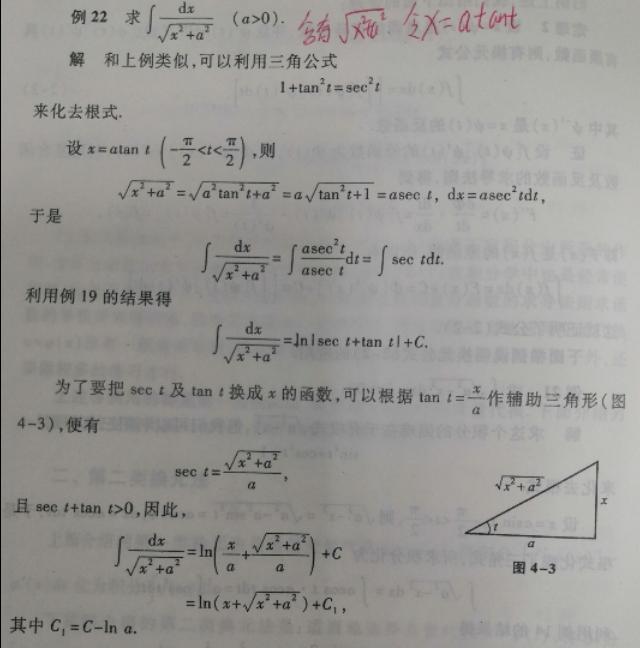 例 22 求∫dx/√(x²+a²) (a>0). 含有√(x²+a²) 令x=atant
解 和上例类似,可以利用三角公式
1+tan²t=sec²t
来化去根式.
设 x=atan t (-π/2<t<π/2),则
√(x²+a²)=√(a²tan²t+a²)=a√(tan²t+1)=asec t, dx=asec²tdt,
于是
∫dx/√(x²+a²)=∫(asec²t/asec t)dt=∫sec tdt.
利用例 19 的结果得
∫dx/√(x²+a²)=ln|sec t+tan t|+C.
为了要把 sec t 及 tan t 换成 x 的函数,可以根据 tan t=x/a 作辅助三角形(图
4-3),便有
sec t=√(x²+a²)/a,
且 sec t+tan t>0,因此,
∫dx/√(x²+a²)=ln(x/a+√(x²+a²)/a)+C
=ln(x+√(x²+a²))+C₁,
其中 C₁=C-ln a.
√(x²+a²)
x
t
a
图 4-3